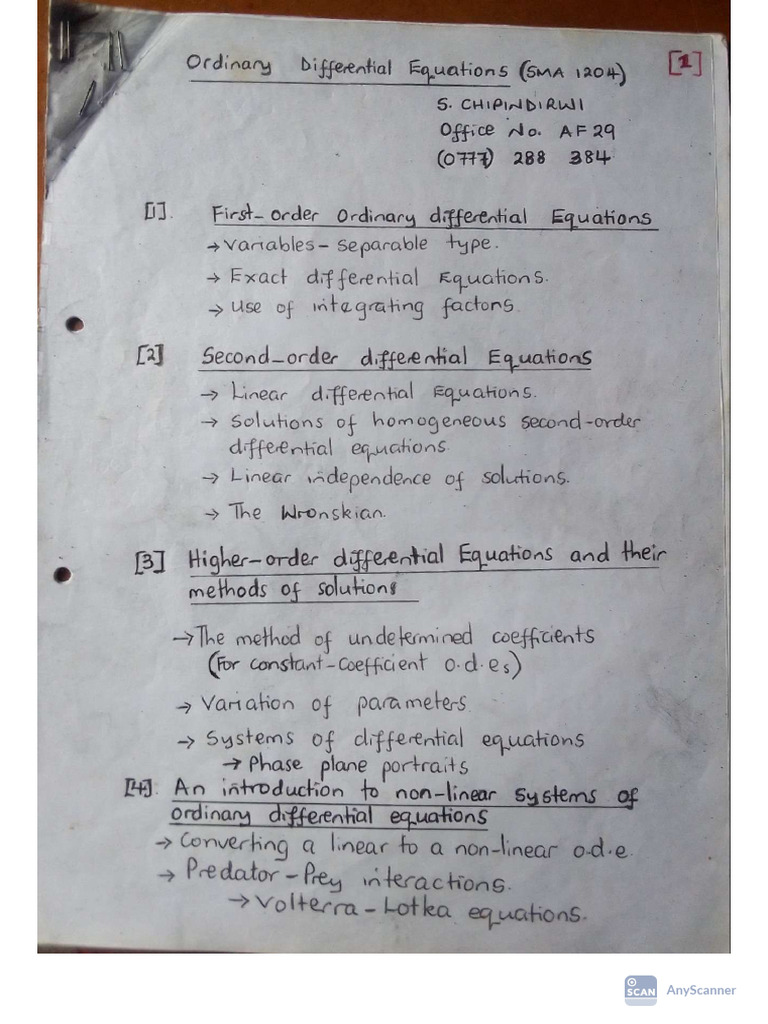 [1]
Ordinary Differential Equations (SMA 1204)
S. CHIPINDIRWI
Office No. AF29
(0777) 288 384
[1]. First-order Ordinary differential Equations
→ Variables-separable type.
→ Exact differential Equations.
→ Use of integrating factors.
[2] Second-order differential Equations
→ Linear differential Equations.
→ Solutions of homogeneous second-order
differential equations.
→ Linear independence of solutions.
→ The Wronskian.
[3] Higher-order differential Equations and their
methods of solutions
→ The method of undetermined coefficients
(For constant-coefficient o.d.es)
→ Variation of parameters.
→ Systems of differential equations
→ Phase plane portraits
[4]. An introduction to non-linear systems of
ordinary differential equations
→ Converting a linear to a non-linear o.d.e.
→ Predator-Prey interactions.
→ Volterra-Lotka equations.
SCAN AnyScanner